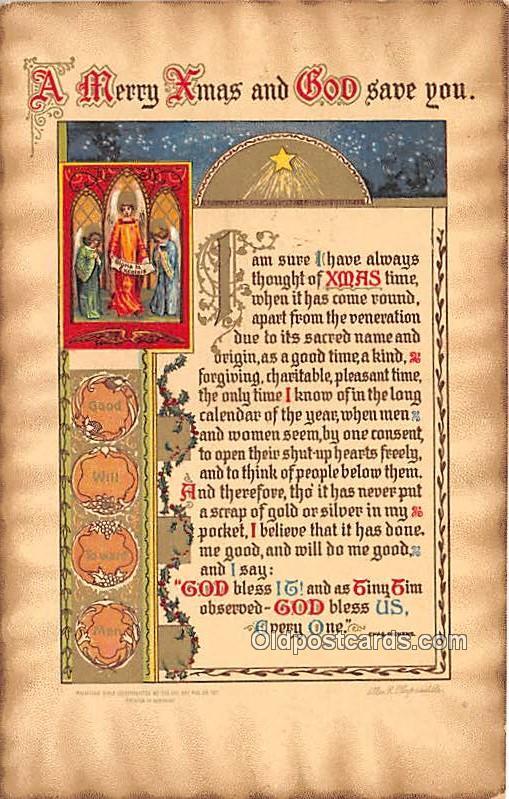 A Merry Xmas and GOD save you.
Gloria in Excelsis
I am sure I have always
thought of XMAS time,
when it has come round,
apart from the veneration
due to its sacred name and
origin, as a good time, a kind,
forgiving, charitable, pleasant time,
the only time I know of in the long
calendar of the year, when men
and women seem, by one consent,
to open their shut-up hearts freely,
and to think of people below them.
And therefore, tho' it has never put
a scrap of gold or silver in my
pocket, I believe that it has done
me good, and will do me good,
and I say:
"GOD bless IT! and as Tiny Tim
observed - GOD bless US,
Every One."
Good
Will
Toward
Men
Oldpostcards.com
PRINTED IN GERMANY